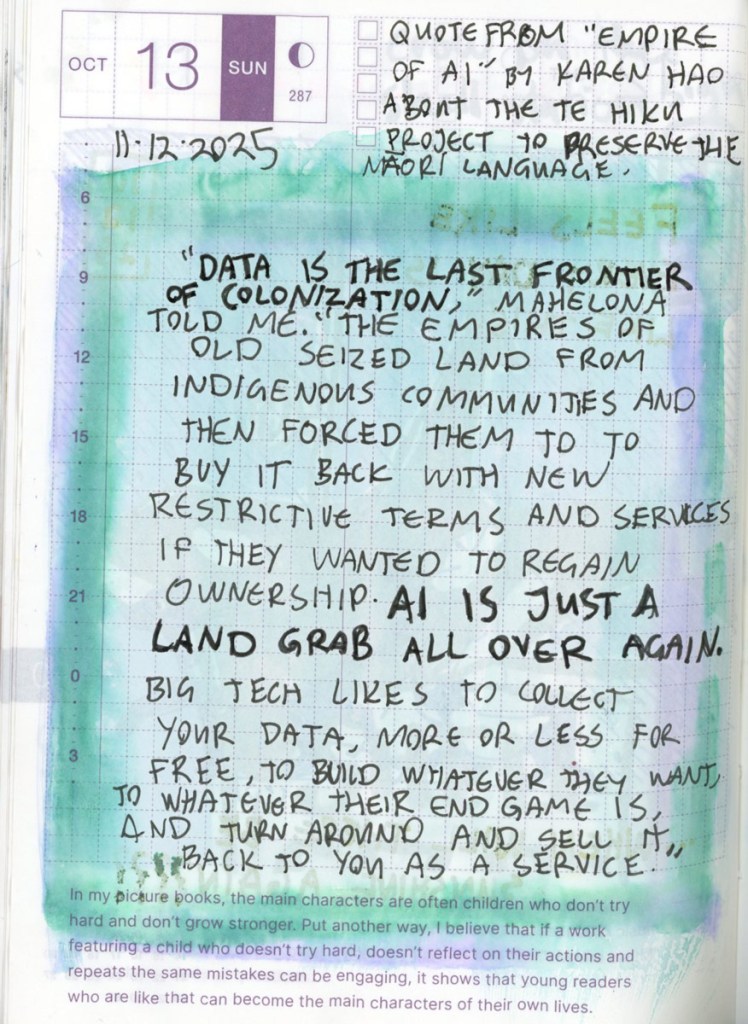 OCT 13 SUN
287
QUOTE FROM "EMPIRE
OF AI" BY KAREN HAO
ABOUT THE TE HIKU
PROJECT TO PRESERVE THE
MĀORI LANGUAGE.
11·12·2025
6
FEELS LIKE
"DATA IS THE LAST FRONTIER
9
OF COLONIZATION," MAHELONA
TOLD ME. "THE EMPIRES OF
OLD SEIZED LAND FROM
12
INDIGENOUS COMMUNITIES AND
THEN FORCED THEM TO TO
15
BUY IT BACK WITH NEW
RESTRICTIVE TERMS AND SERVICES
18
IF THEY WANTED TO REGAIN
OWNERSHIP. AI IS JUST A
21
LAND GRAB ALL OVER AGAIN.
BIG TECH LIKES TO COLLECT
0
YOUR DATA, MORE OR LESS FOR
3
FREE, TO BUILD WHATEVER THEY WANT,
TO WHATEVER THEIR END GAME IS,
AND TURN AROUND AND SELL IT
BACK TO YOU AS A SERVICE."
In my picture books, the main characters are often children who don't try
hard and don't grow stronger. Put another way, I believe that if a work
featuring a child who doesn't try hard, doesn't reflect on their actions and
repeats the same mistakes can be engaging, it shows that young readers
who are like that can become the main characters of their own lives.